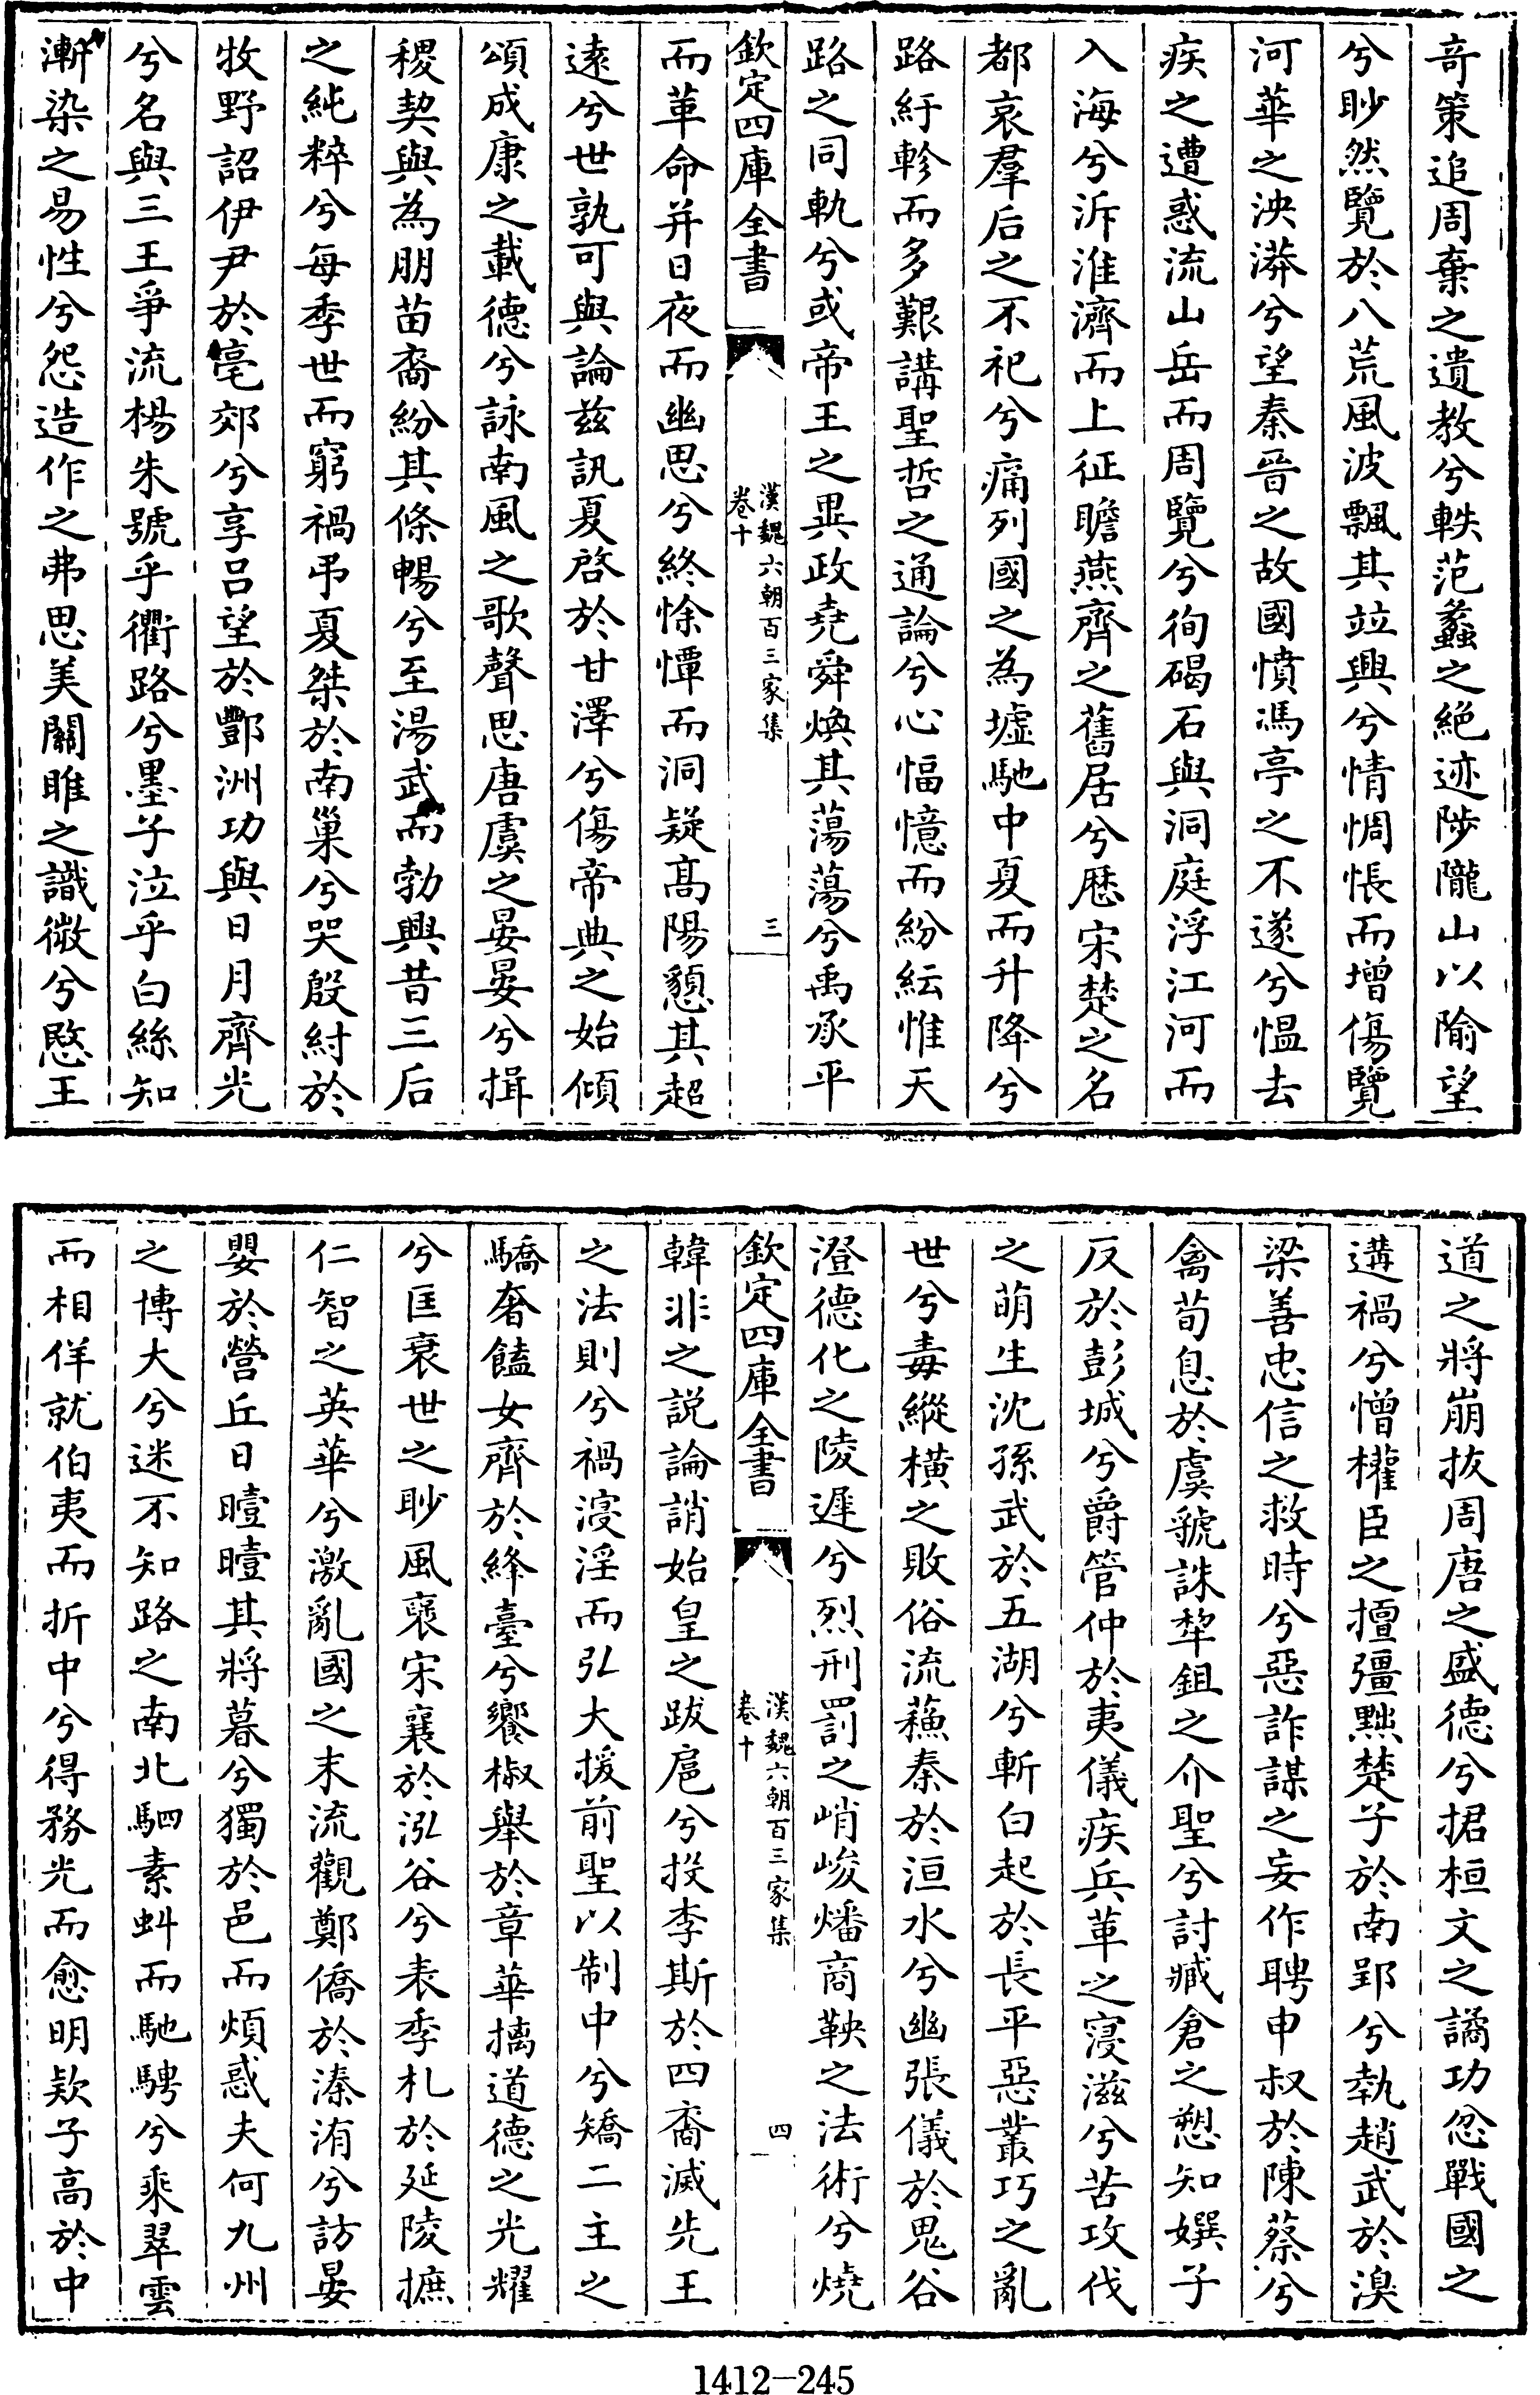 奇策追周棄之遺教兮軼范蠡之絕迹陟隴山以隃望
兮眇然覽於八荒風波飄其竝興兮情惆悵而增傷覽
河華之泱漭兮望秦晉之故國憤馮亭之不遂兮愠去
疾之遭惑流山岳而周覽兮徇碣石與洞庭浮江河而
入海兮泝淮濟而上征瞻燕齊之舊居兮歷宋楚之名
都哀羣后之不祀兮痛列國之為墟馳中夏而升降兮
路紆軫而多艱講聖哲之通論兮心愊憶而紛紜惟天
路之同軌兮或帝王之異政堯舜煥其蕩蕩兮禹承平
欽定四庫全書
漢魏六朝百三家集
卷十
三
而革命并日夜而幽思兮終悇憛而洞疑高陽䫉其超
遠兮世孰可與論兹訊夏啓於甘澤兮傷帝典之始傾
頌成康之載德兮詠南風之歌聲思唐虞之晏晏兮揖
稷契與為朋苗裔紛其條暢兮至湯武而勃興昔三后
之純粹兮每季世而窮禍弔夏桀於南巢兮哭殷紂於
牧野詔伊尹於亳郊兮享呂望於酆洲功與日月齊光
兮名與三王爭流楊朱號乎衢路兮墨子泣乎白絲知
漸染之易性兮怨造作之弗思美關雎之識微兮愍王
道之將崩拔周唐之盛德兮捃桓文之譎功忿戰國之
遘禍兮憎權臣之擅彊黜楚子於南郢兮執趙武於湨
梁善忠信之救時兮惡詐謀之妄作聘申叔於陳蔡兮
禽荀息於虞虢誅犂鉏之介聖兮討臧倉之愬知嬪子
反於彭城兮爵管仲於夷儀疾兵革之寖滋兮苦攻伐
之萌生沈孫武於五湖兮斬白起於長平惡叢巧之亂
世兮毒縱橫之敗俗流蘇秦於洹水兮幽張儀於鬼谷
澄德化之陵遲兮烈刑罰之峭峻燔商鞅之法術兮燒
欽定四庫全書
漢魏六朝百三家集
卷十
四
韓非之説論誚始皇之跋扈兮投李斯於四裔滅先王
之法則兮禍寖淫而弘大援前聖以制中兮矯二主之
驕奢饁女齊於絳臺兮饗椒舉於章華摛道德之光耀
兮匡衰世之眇風褒宋襄於泓谷兮表季札於延陵摭
仁智之英華兮激亂國之末流觀鄭僑於溱洧兮訪晏
嬰於營丘日曀曀其將暮兮獨於邑而煩惑夫何九州
之博大兮迷不知路之南北駟素虯而馳騁兮乘翠雲
而相佯就伯夷而折中兮得務光而愈明款子高於中
1412-245